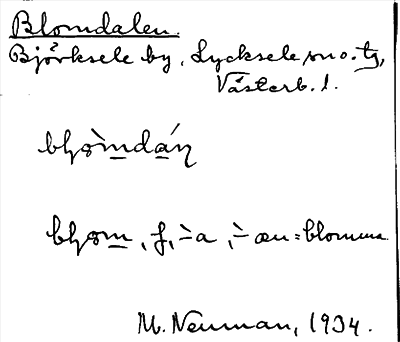 Blomdalen.
Björksele by, Lycksele sn o. tg,
Västerb. l.
bḷòmdáṇ
bḷom, f, -̀a, -̀æn = blomma
M. Neuman, 1934.